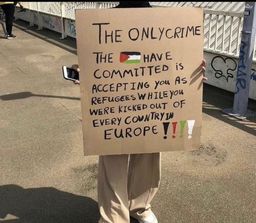 THE ONLY CRIME
THE 🇵🇸 HAVE
COMMITTED IS
ACCEPTING YOU AS
REFUGEES WHILE YOU
WERE KICKED OUT OF
EVERY COUNTRY IN
EUROPE !!!!